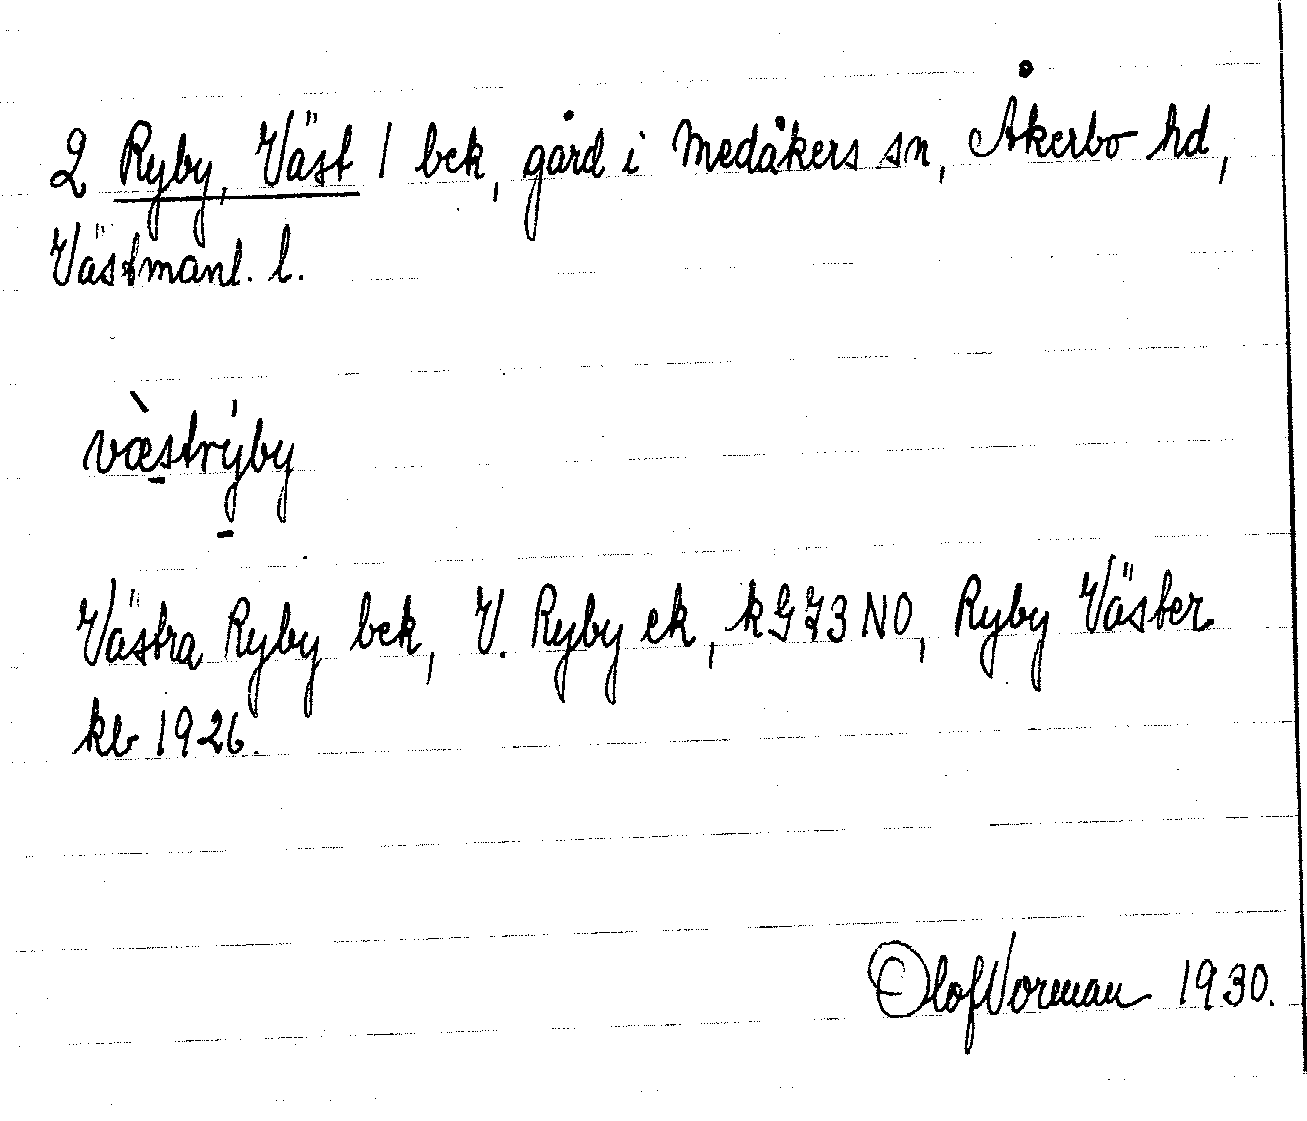 2 Ryby, Väst 1 bek, gård i Medåkers sn, Åkerbo hd,
Västmanl. l.
væ̀strýby
Västra Ryby bek, V. Ryby ek, k G73 NO, Ryby Väster
kb 1926.
Olof Vorman 1930.